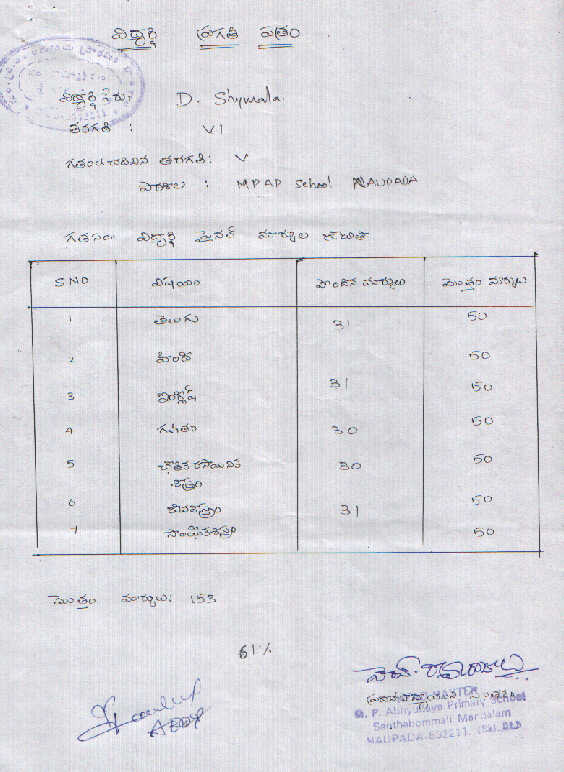 విద్యార్థి ప్రగతి పత్రం
విద్యార్థి పేరు: D. Shymala
తరగతి : VI
గతంలో చదివిన తరగతి: V
పాఠశాల : MPAP School NAUPADA
గతసం. విద్యార్థి ఫైనల్ మార్కుల జాబితా
S.NO విషయం పొందిన మార్కులు మొత్తం మార్కులు
1 తెలుగు 31 50
2 హిందీ 50
3 ఇంగ్లీష్ 31 50
4 గణితం 30 50
5 భౌతిక రసాయనిక శాస్త్రం 30 50
6 జీవశాస్త్రం 31 50
7 సాంఘికశాస్త్రం 50
మొత్తం మార్కులు: 153
61%
MASTER
Primary School
Santhabommali Mandalam
NAUPADA-532211.